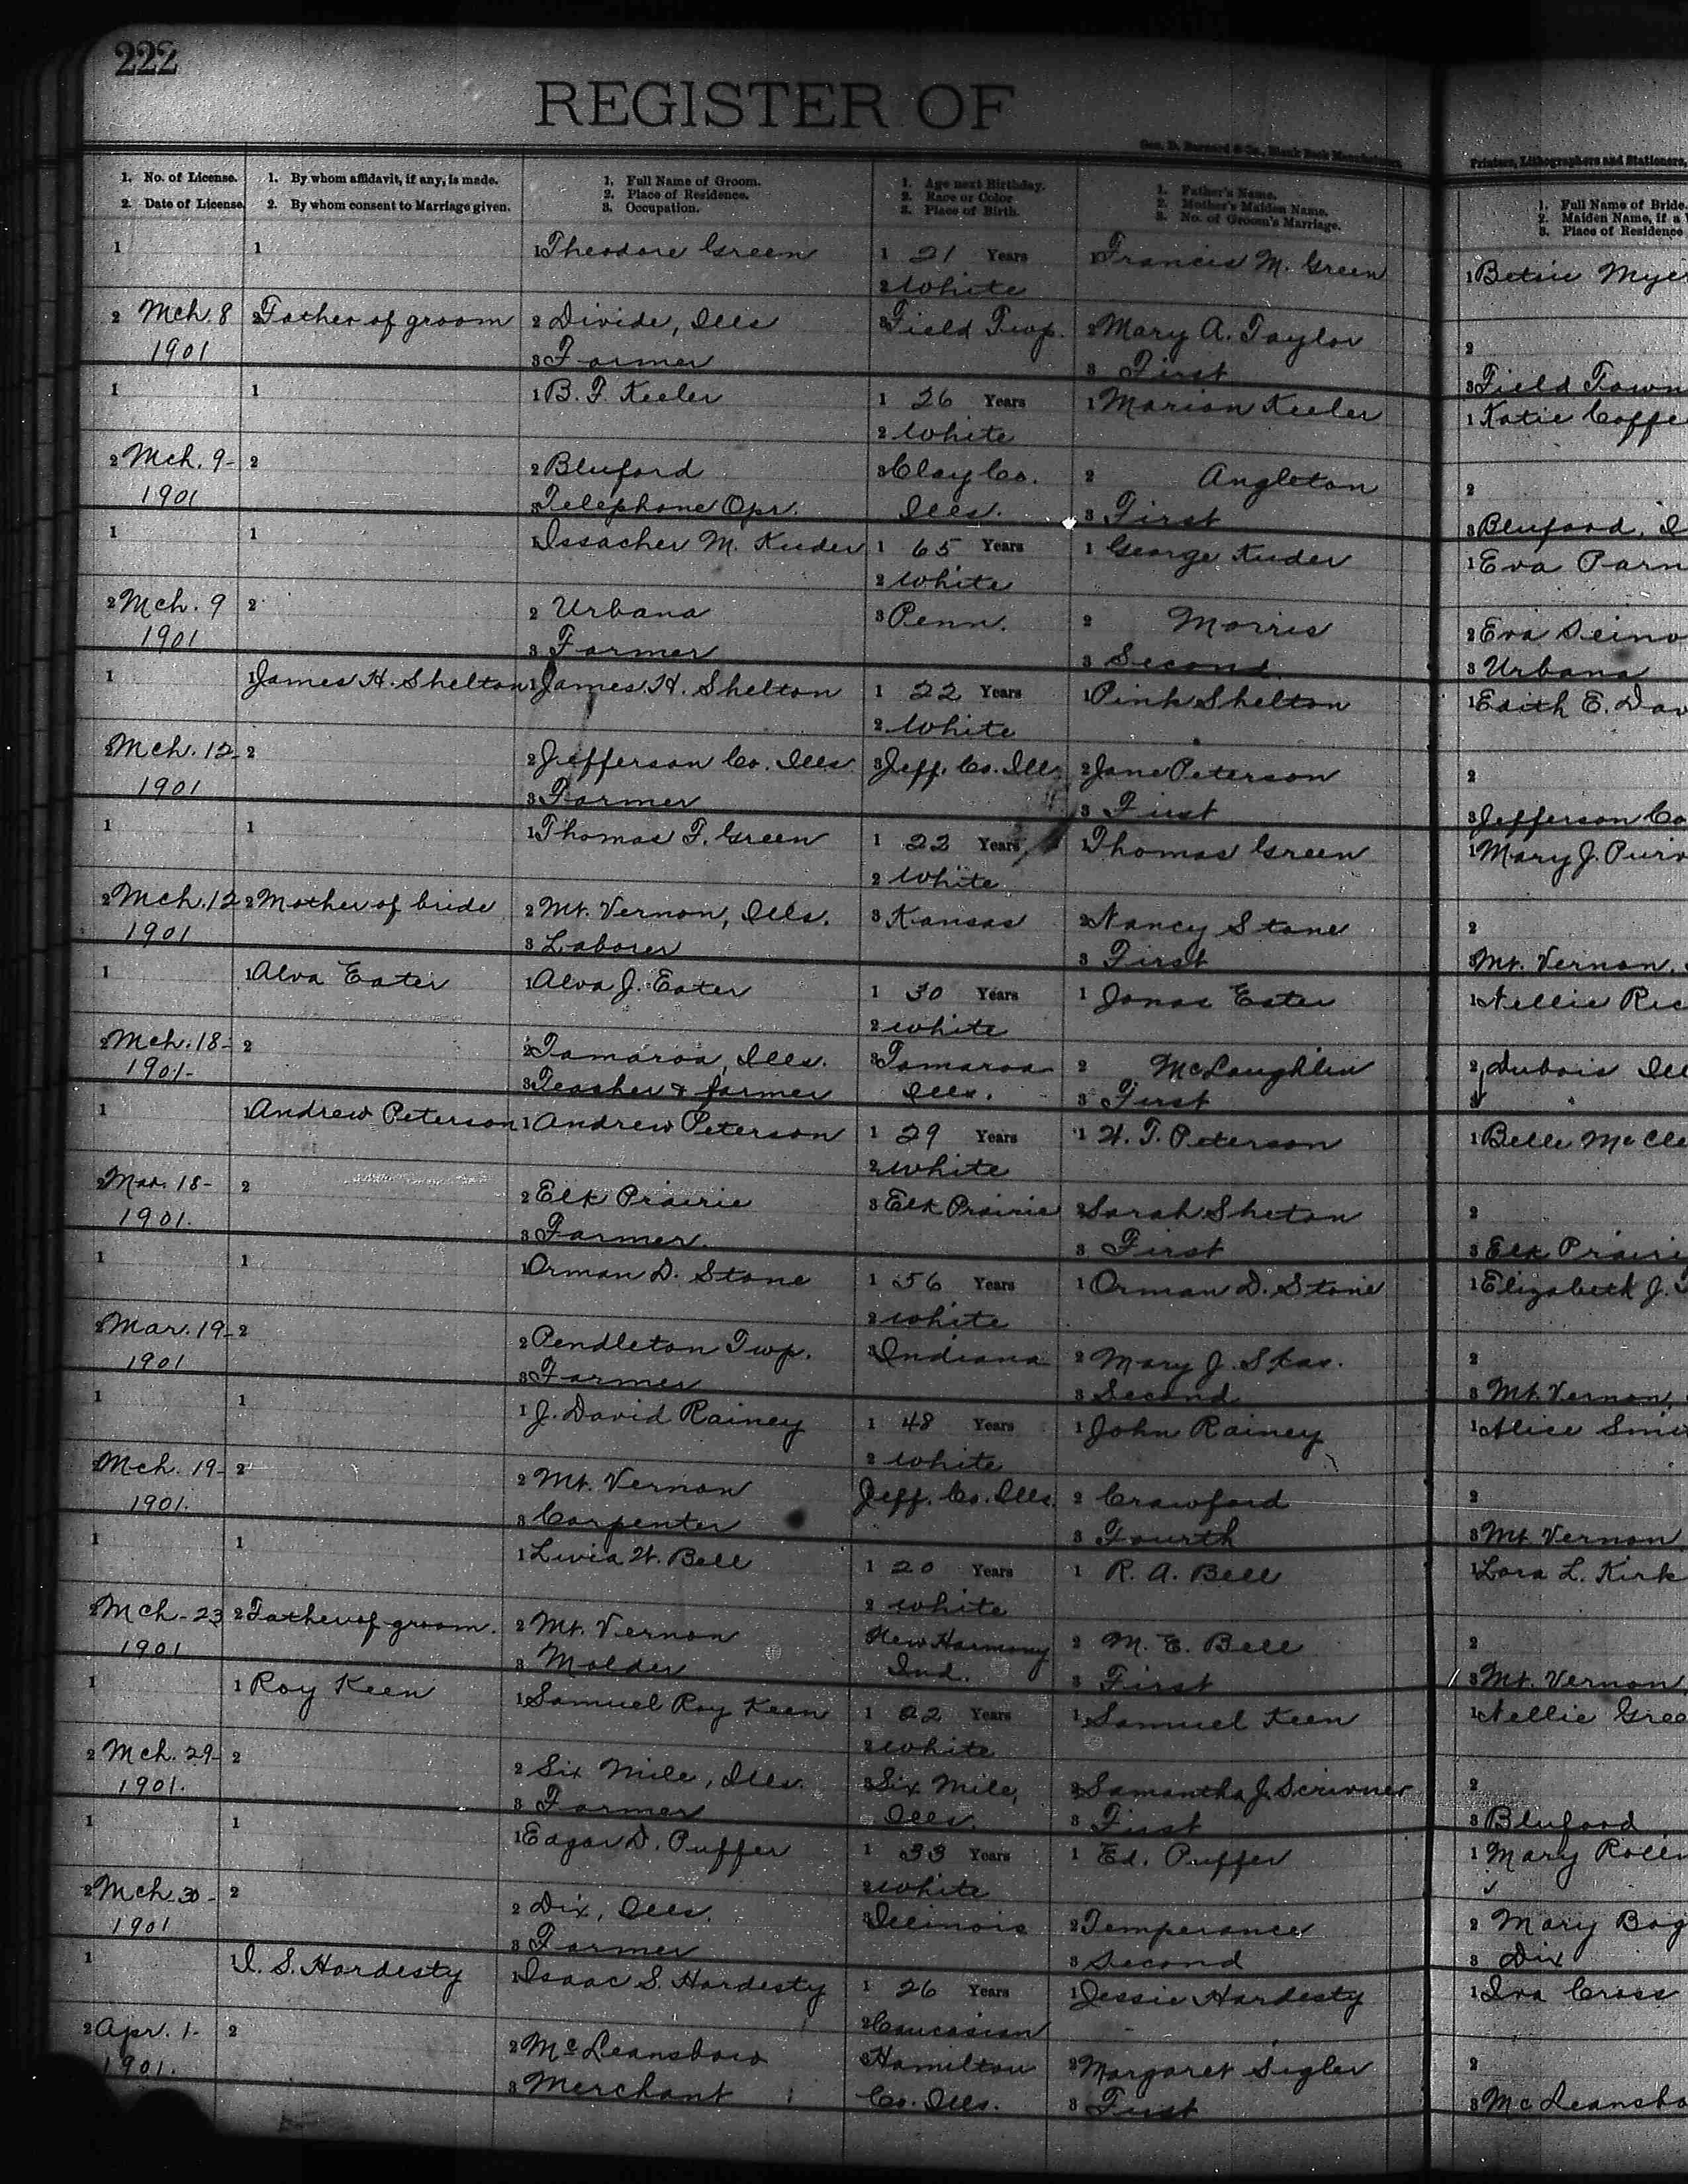 222
REGISTER OF
Geo. D. Barnard & Co., Blank Book Manufacturers,
Printers, Lithographers and Stationers,
1. No. of License.
2. Date of License.
1. By whom affidavit, if any, is made.
2. By whom consent to Marriage given.
1. Full Name of Groom.
2. Place of Residence.
3. Occupation.
1. Age next Birthday.
2. Race or Color
3. Place of Birth.
1. Father's Name.
2. Mother's Maiden Name.
3. No. of Groom's Marriage.
1. Full Name of Bride.
2. Maiden Name, if a
3. Place of Residence
1 1 1 Theodore Green 1 21 Years 1 Francis M. Green 1 Betsie Myer
2 White
2 Mch. 8 2 Father of groom 2 Divide, Ills 3 Field Twp. 2 Mary A. Taylor 2
1901 3 Farmer 3 First 3 Field Town
1 1 1 B. F. Keeler 1 26 Years 1 Marion Keeler 1 Katie Coffe
2 White
2 Mch. 9- 2 2 Bluford 3 Clay Co. 2 Angleton 2
1901 3 Telephone Opr. Ills. 3 First 3 Bluford, I
1 1 1 Issacher M. Kuder 1 65 Years 1 George Kuder 1 Eva Parn
2 White
2 Mch. 9 2 2 Urbana 3 Penn. 2 Morris 2 Eva
1901 3 Farmer 3 Second 3 Urbana
1 1 James H. Shelton 1 James H. Shelton 1 22 Years 1 Pink Shelton 1 Edith E. Dav
2 White
2 Mch. 12- 2 2 Jefferson Co. Ills 3 Jeff. Co. Ill. 2 Jane Peterson 2
1901 3 Farmer 3 First 3 Jefferson Co
1 1 1 Thomas F. Green 1 22 Years 1 Thomas Green 1 Mary J. Purv
2 White
2 Mch. 12 2 Mother of bride 2 Mt. Vernon, Ills. 3 Kansas 2 Nancy Stone 2
1901 3 Laborer 3 First 3 Mt. Vernon,
1 1 Alva Eater 1 Alva J. Eater 1 30 Years 1 Jonas Eater 1 Nellie Ric
2 White
2 Mch. 18- 2 2 Tamaroa, Ills. 3 Tamaroa 2 McLaughlin 2 Dubois Ill
1901- 3 Teasher & farmer Ills. 3 First 3
1 1 Andrew Peterson 1 Andrew Peterson 1 29 Years 1 H. T. Peterson 1 Belle McCle
2 White
2 Mar. 18- 2 2 Elk Prairie 3 Elk Prairie 2 Sarah Sheton 2
1901. 3 Farmer. 3 First 3 Elk Prairi
1 1 1 Orman D. Stone 1 56 Years 1 Orman D. Stone 1 Elizabeth J.
2 White
2 Mar. 19- 2 2 Pendleton Twp. 3 Indiana 2 Mary J. 2
1901 3 Farmer 3 Second 3 Mt. Vernon,
1 1 1 J. David Rainey 1 48 Years 1 John Rainey 1 Alice
2 White
2 Mch. 19- 2 2 Mt. Vernon Jeff. Co. Ills. 2 Crawford 2
1901. 3 Carpenter 3 Fourth 3 Mt. Vernon
1 1 1 Livia W. Bell 1 20 Years 1 R. A. Bell 1 Lora L. Kirk
2 White
2 Mch-23 2 Father of groom. 2 Mt. Vernon New Harmony 2 M. E. Bell 2
1901 3 Molder Ind. 3 First 3 Mt. Vernon,
1 1 Roy Keen 1 Samuel Roy Keen 1 22 Years 1 Samuel Keen 1 Nellie Gree
2 White
2 Mch. 29- 2 2 Six Mile, Ills. 3 Six Mile, 2 Samantha J. Scrivner 2
1901. 3 Farmer Ills. 3 First 3 Bluford
1 1 1 Edgar D. Puffer 1 33 Years 1 Ed. Puffer 1 Mary
2 White
2 Mch. 30- 2 2 Dix, Ills. 3 Illinois 2 Temperance 2 Mary Bog
1901 3 Farmer 3 Second 3 Dix
1 1 I. S. Hardesty 1 Isaac S. Hardesty 1 26 Years 1 Jessie Hardesty 1 Iva Cross
2 Caucasian
2 Apr. 1- 2 2 McLeansboro 3 Hamilton 2 Margaret Sigler 2
1901. 3 Merchant Co. Ills. 3 First 3 McLeansbo